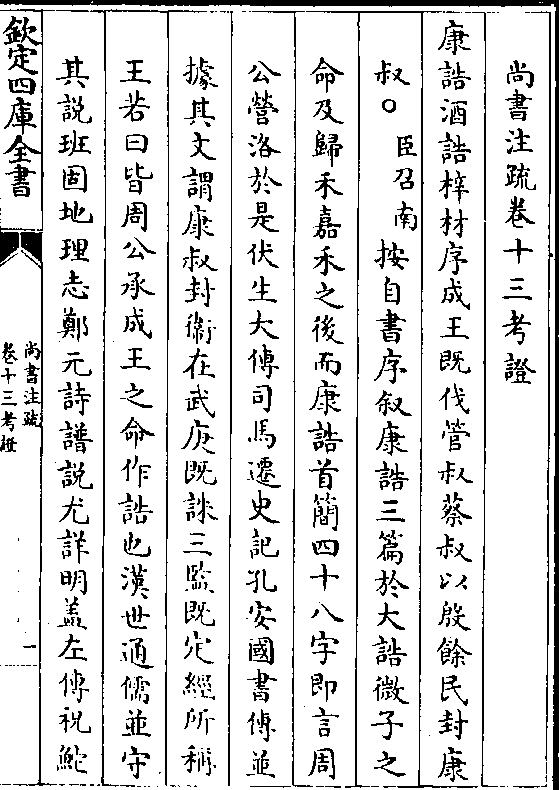 尚書注疏卷十三考證
康誥酒誥梓材序成王旣伐管叔蔡叔以殷餘民封康
叔○臣召南按自書序叙康誥三篇於大誥微子之
命及歸禾嘉禾之後而康誥首簡四十八字即言周
公營洛於是伏生大傳司馬遷史記孔安國書傳並
據其文謂康叔封衛在武庚旣誅三監旣定經所稱
王若曰皆周公承成王之命作誥也漢世通儒並守
其説班固地理志鄭元詩譜説尤詳明葢左傳祝鮀
欽定四庫全書
尚書注疏
卷十三考證
一